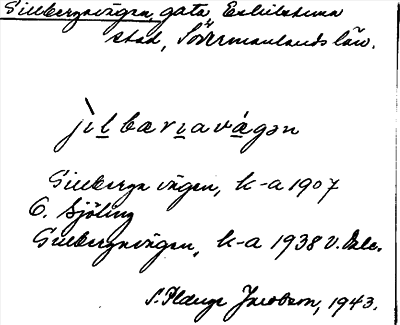 Gillbergavägen, gata, Eskilstuna
stad, Södermanlands län.
jìlbærıavágən
Gillberga vägen, k-a 1907
C. Sjöling
Gillbergavägen, k-a 1938 V. Ekl.
S. Jacobson, 1943.